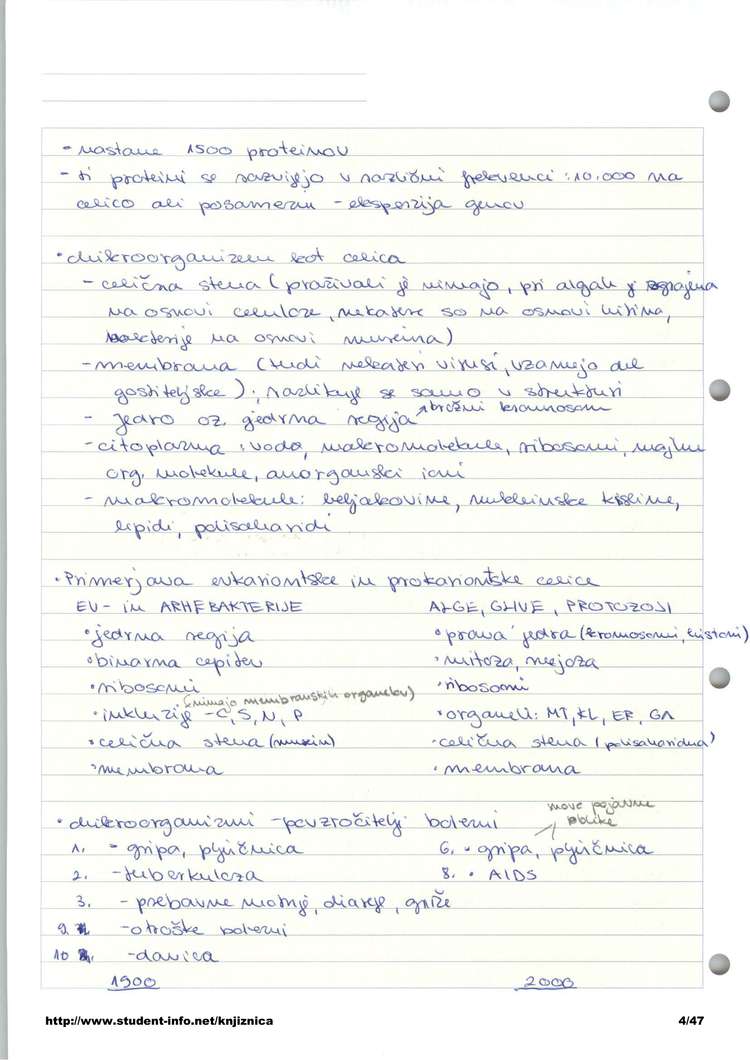 - nastane 1500 proteinov
- ti proteini se razvijejo v različni frekvenci : 10.000 na
celico ali posamezni - ekspresija genov
• Mikroorganizem kot celica
- celična stena (praživali je nimajo, pri algah je zgrajena
na osnovi celuloze, nekatere so na osnovi hitina,
bakterije na osnovi mureina)
- membrana (tudi nekateri virusi, vzamejo del
gostiteljske); razlikuje se samo v strukturi
- jedro oz. jedrna regija brožni kromosom
- citoplazma : voda, makromolekule, ribosomi, majhne
org. molekule, anorganski ioni
- makromolekule: beljakovine, nukleinske kisline,
lipidi, polisaharidi
• Primerjava evkariontske in prokariontske celice
EV- in ARHEBAKTERIJE ALGE, GLIVE, PROTOZOJI
• jedrna regija • prava jedra (kromosomi, histoni)
• binarna cepitev • mitoza, mejoza
• ribosomi • ribosomi
(nimajo membranskih organelov)
• inkluzije - C, S, N, P • organeli: MT, KL, ER, GA
• celična stena (murein) • celična stena (polisaharidna)
• membrana • membrana
nove pojavne
oblike
• Mikroorganizmi - povzročitelji bolezni
1. - gripa, pljučnica 6. • gripa, pljučnica
2. - tuberkuloza 8. • AIDS
3. - prebavne motnje, diareje, griže
9. - otroške bolezni
10. - davica
1900 2000
http://www.student-info.net/knjiznica 4/47